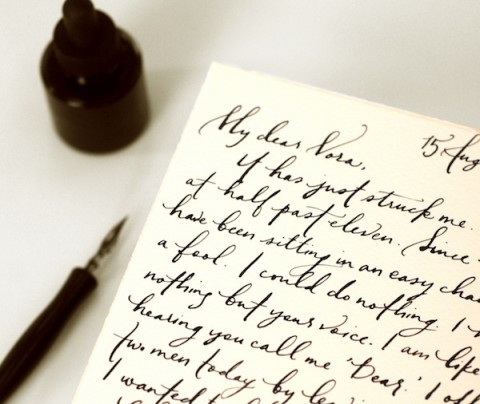 My dear Nora, 15 Aug
It has just struck me.
at half past eleven. Since
have been sitting in an easy chai
a fool. I could do nothing. I
nothing but your voice. I am like
hearing you call me 'Dear.' I off
two men today by lea
I wanted